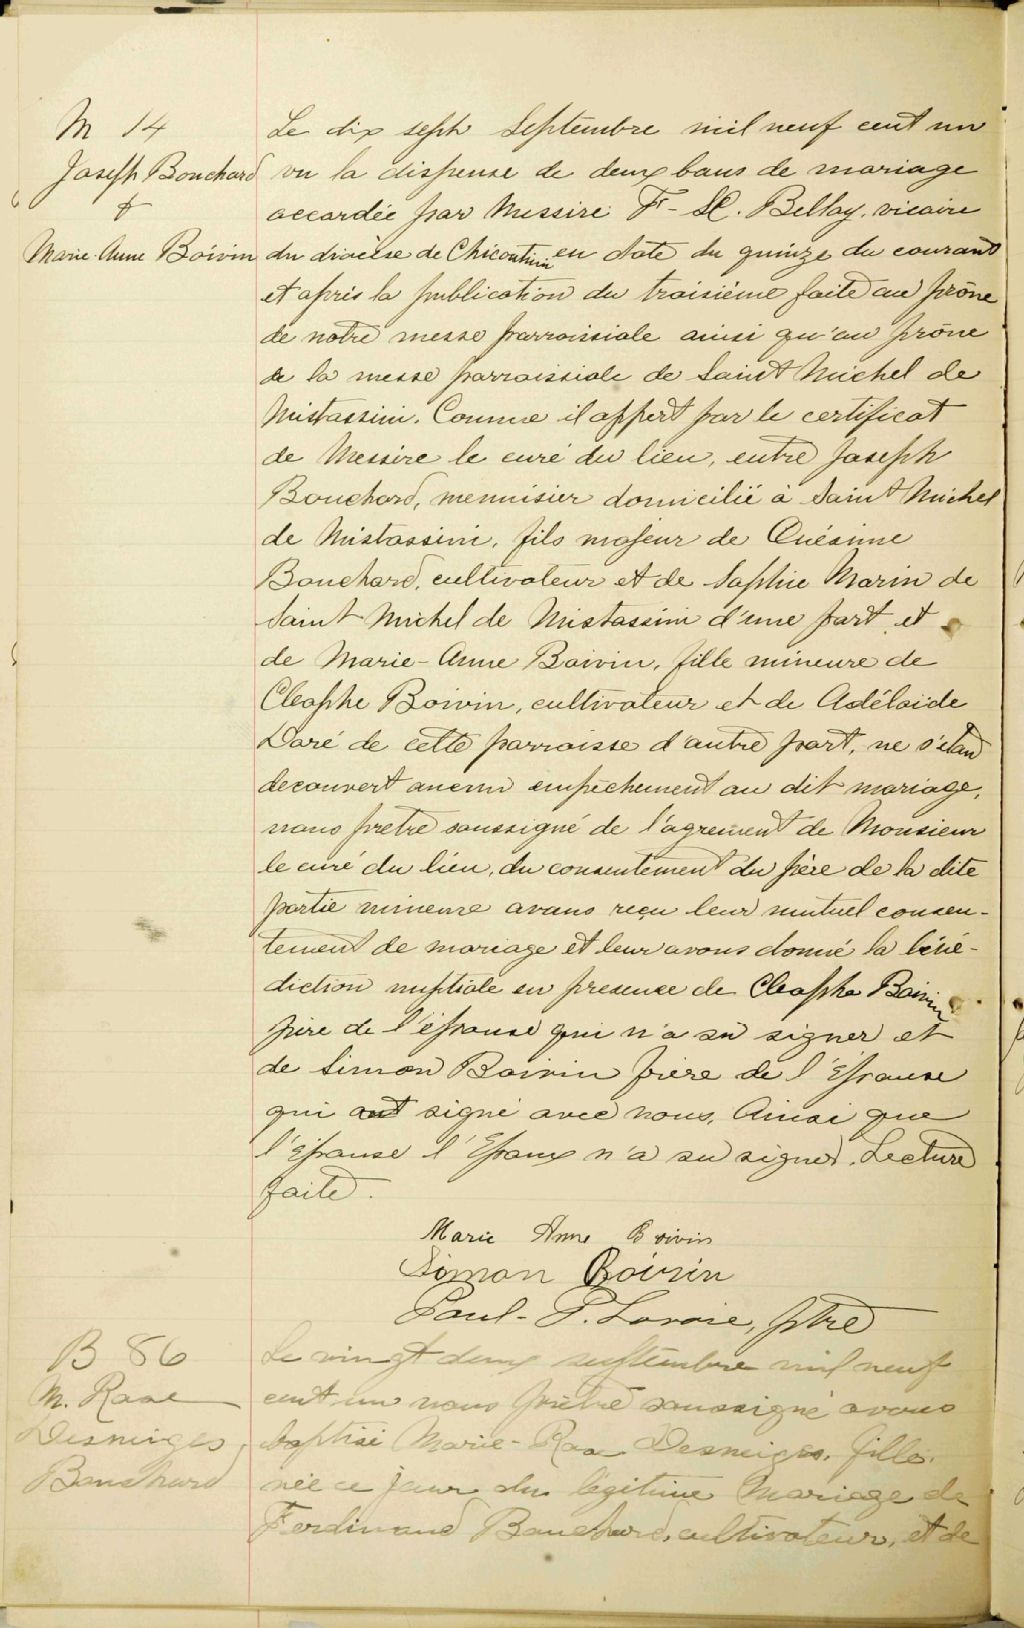 M 14
Joseph Bouchard
&
Marie-Anne Boivin
Le dix sept Septembre mil neuf cent un
vu la dispense de deux bans de mariage
accordée par Messire Fr- X. Bellay, vicaire
du diocèse de Chicoutimi en date du quinze du courant
et après la publication du troisième faite au prône
de notre messe parroissiale ainsi qu'au prône
de la messe parroissiale de Saint Michel de
Mistassini. Comme il appert par le certificat
de Messire le curé du lieu, entre Joseph
Bouchard, menuisier domicilié à Saint Michel
de Mistassini, fils majeur de Onésime
Bouchard, cultivateur et de Sophie Marin de
Saint Michel de Mistassini d'une part et
de Marie-Anne Boivin, fille mineure de
Cléophe Boivin, cultivateur et de Adélaïde
Daré de cette parroisse d'autre part, ne s'étant
decouvert aucun empêchement au dit mariage,
nous prêtre soussigné de l'agrement de Monsieur
le curé du lieu, du consentement du père de la dite
partie mineure avons reçu leur mutuel consen-
tement de mariage et leur avons donné la béné-
diction nuptiale en presence de Cleophe Boivin
père de l'épouse qui n'a su signer et
de Simon Boivin frère de l'Épouse
qui ont signé avec nous, Ainsi que
l'Épouse l'Epoux n'a su signer. Lecture
faite.
Marie Anne Boivin
Simon Boivin
Paul-P. Lavoie, ptre
B 86
M. Rose
Desneiges
Bouchard
Le vingt deux septembre mil neuf
cent un nous prêtre soussigné avons
baptisé Marie-Rose Desneiges, fille,
née ce jour du légitime Mariage de
Ferdinand Bouchard, cultivateur, et de